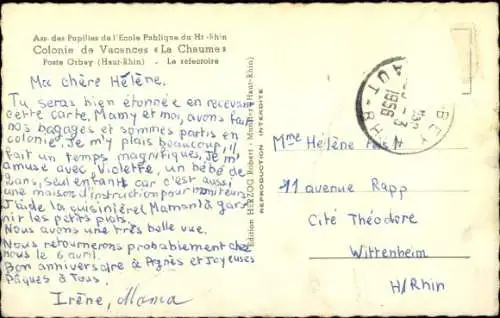 Ass. des Pupilles de l'Ecole Publique du Ht-Rhin
Colonie de Vacances « La Chaume »
Poste Orbey (Haut-Rhin) - Le refectoire
Ma chère Hélène.
Tu seras bien étonnée en recevant
cette carte, Mamy et moi, avons fait
nos bagages et sommes partis en
colonie. Je m'y plais beaucoup, il
fait un temps magnifique. Je m'
amuse avec, Violette, un bébé de
2 ans, seul enfant car c'est aussi
une maison d'instruction pour moniteurs
J'aide la cuisinière (Maman) à gar
nir les petits plats.
Nous avons une très belle vue.
Nous retournerons probablement chez
nous le 6 avril.
Bon anniversaire à Agnès et Joyeuses
Pâques à Tous.
Irène, Mama
Edition HERZOG Robert - (Haut-Rhin)
REPRODUCTION INTERDITE
1956
Mme Hélène
11 avenue Rapp
Cité Théodore
Wittenheim
H/Rhin